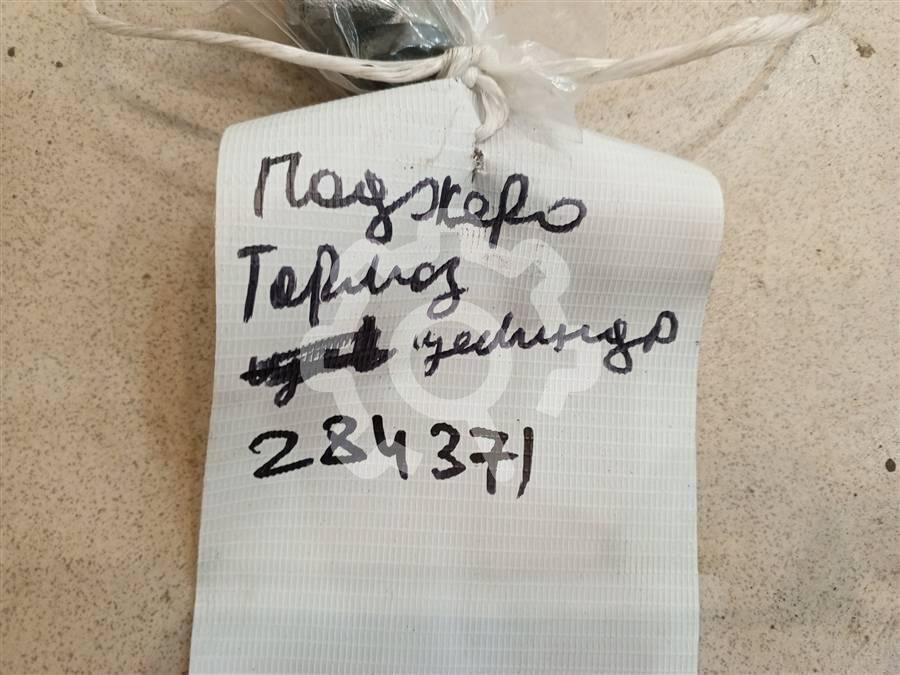 Паджеро
Тормоз
цилиндр
284371